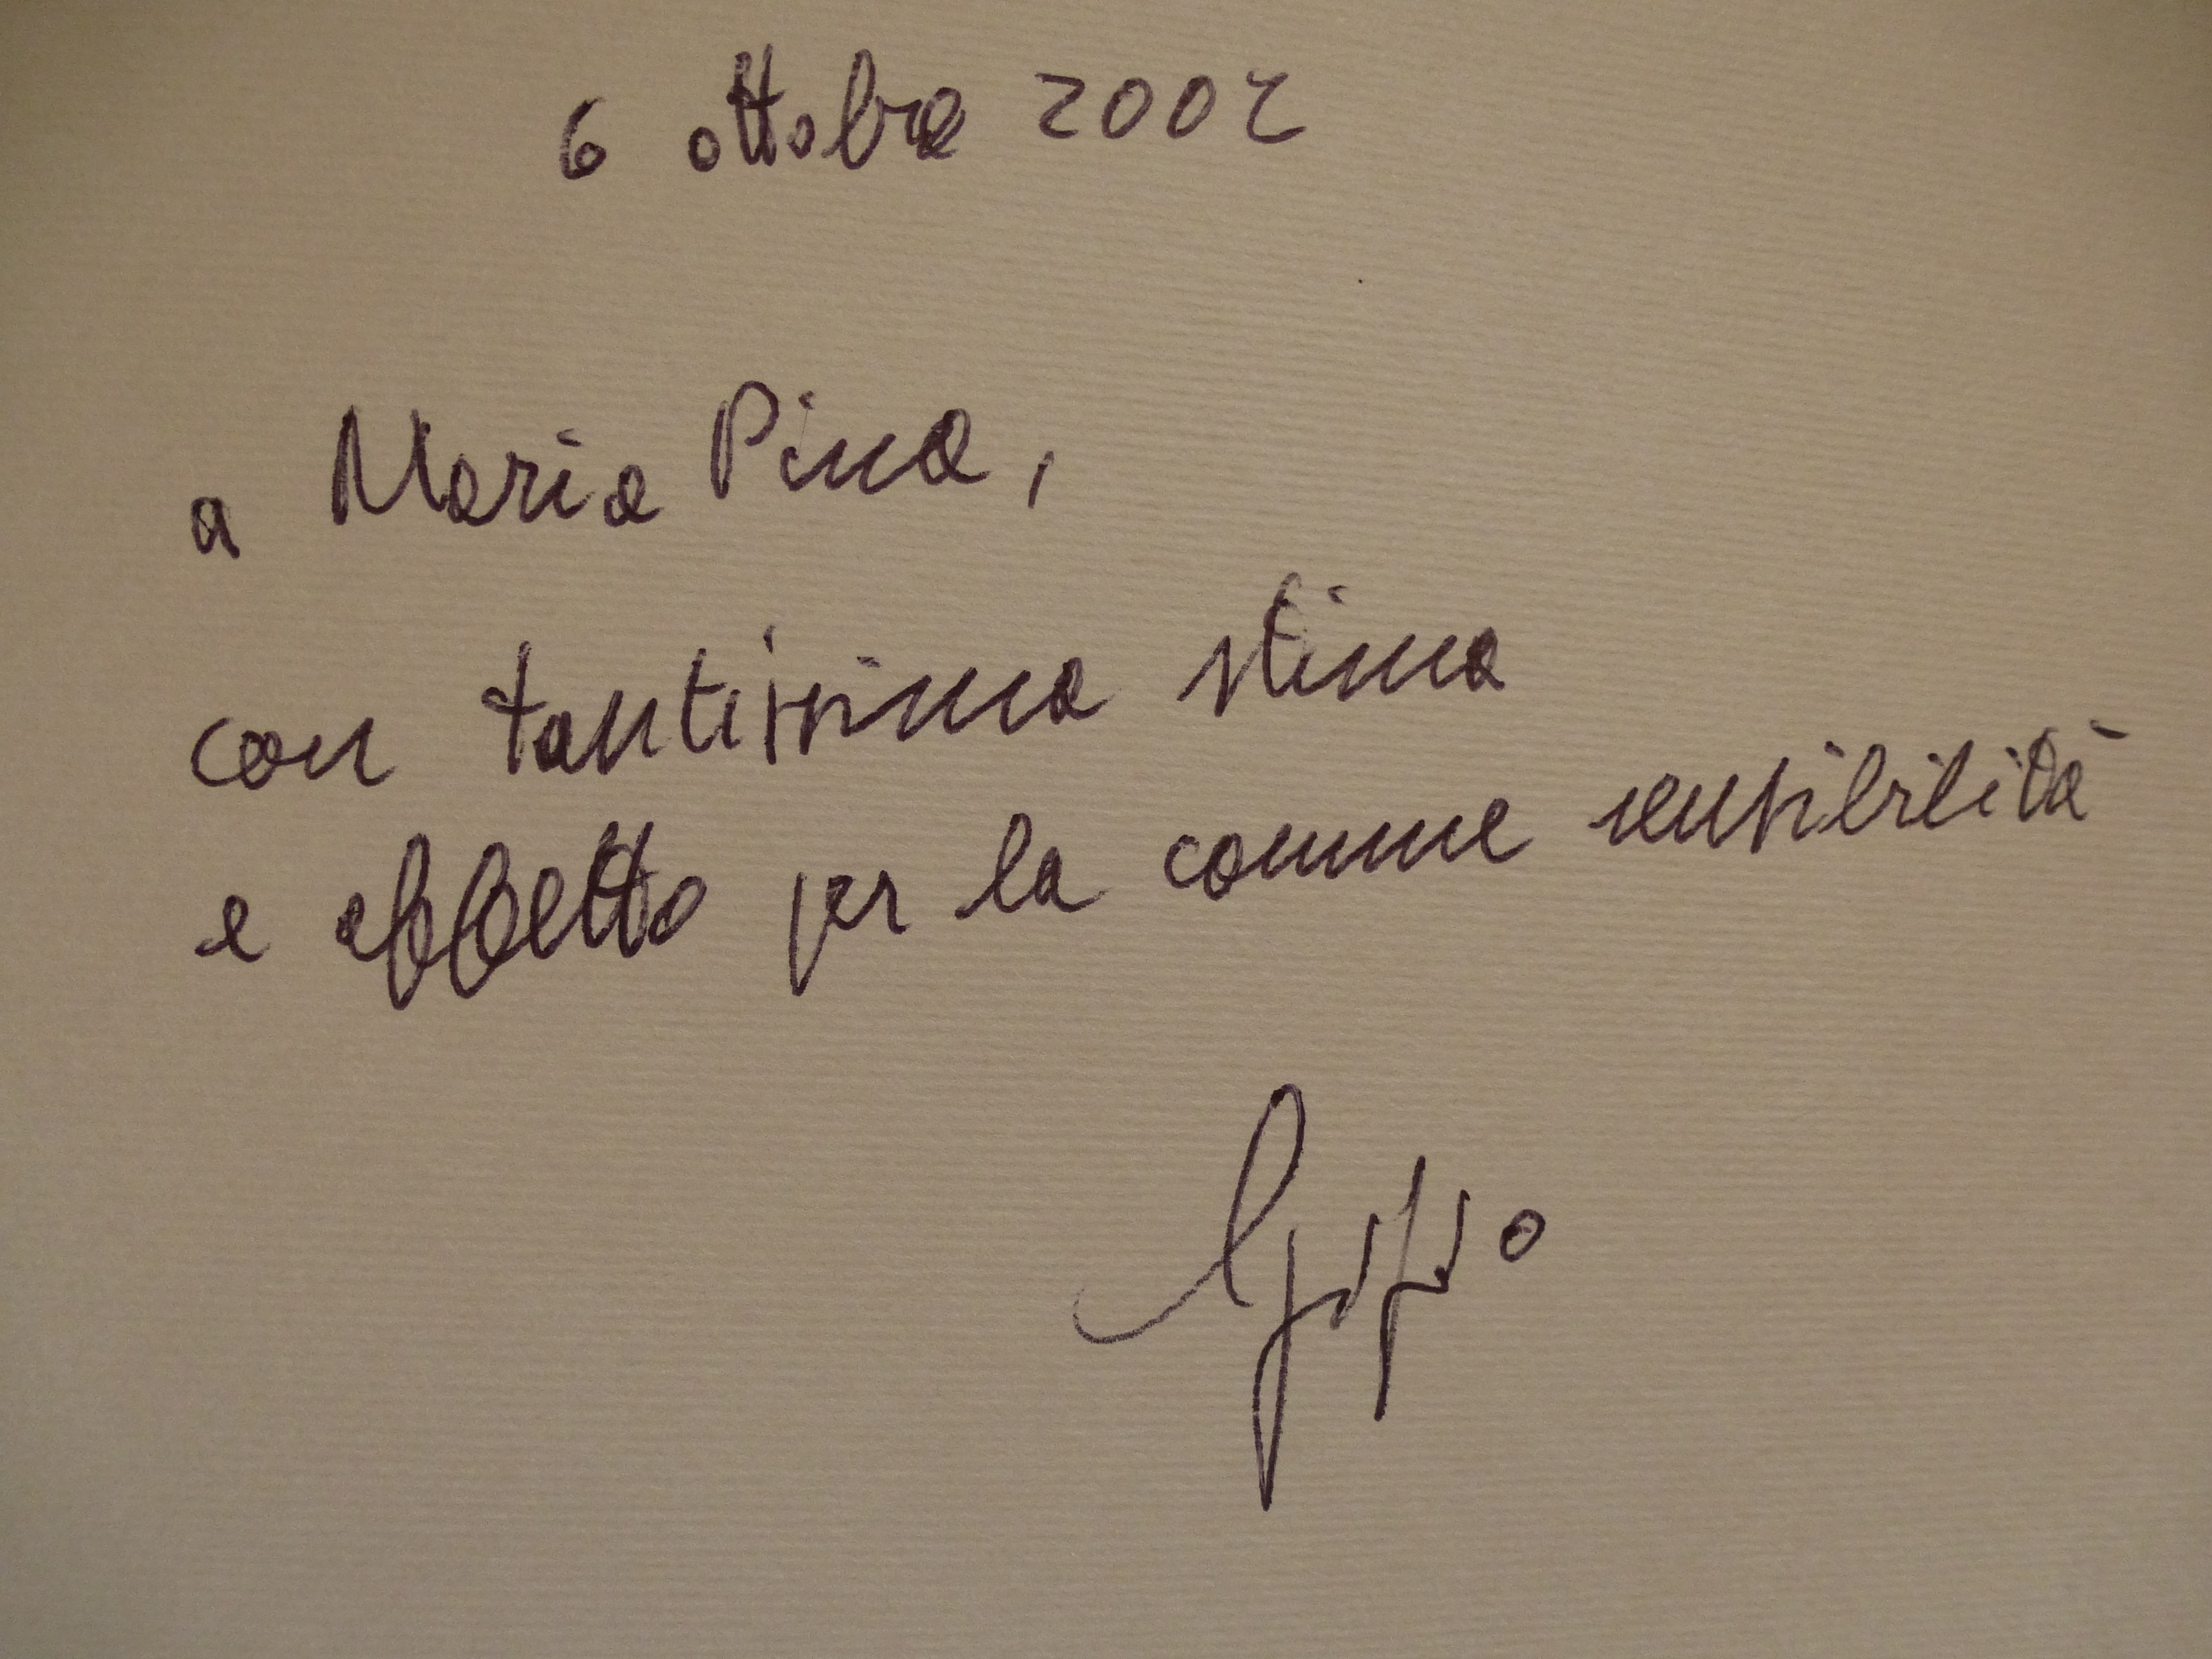 6 ottobre 2002
a Maria Pina,
con tantissima stima
e affetto per la comune sensibilità